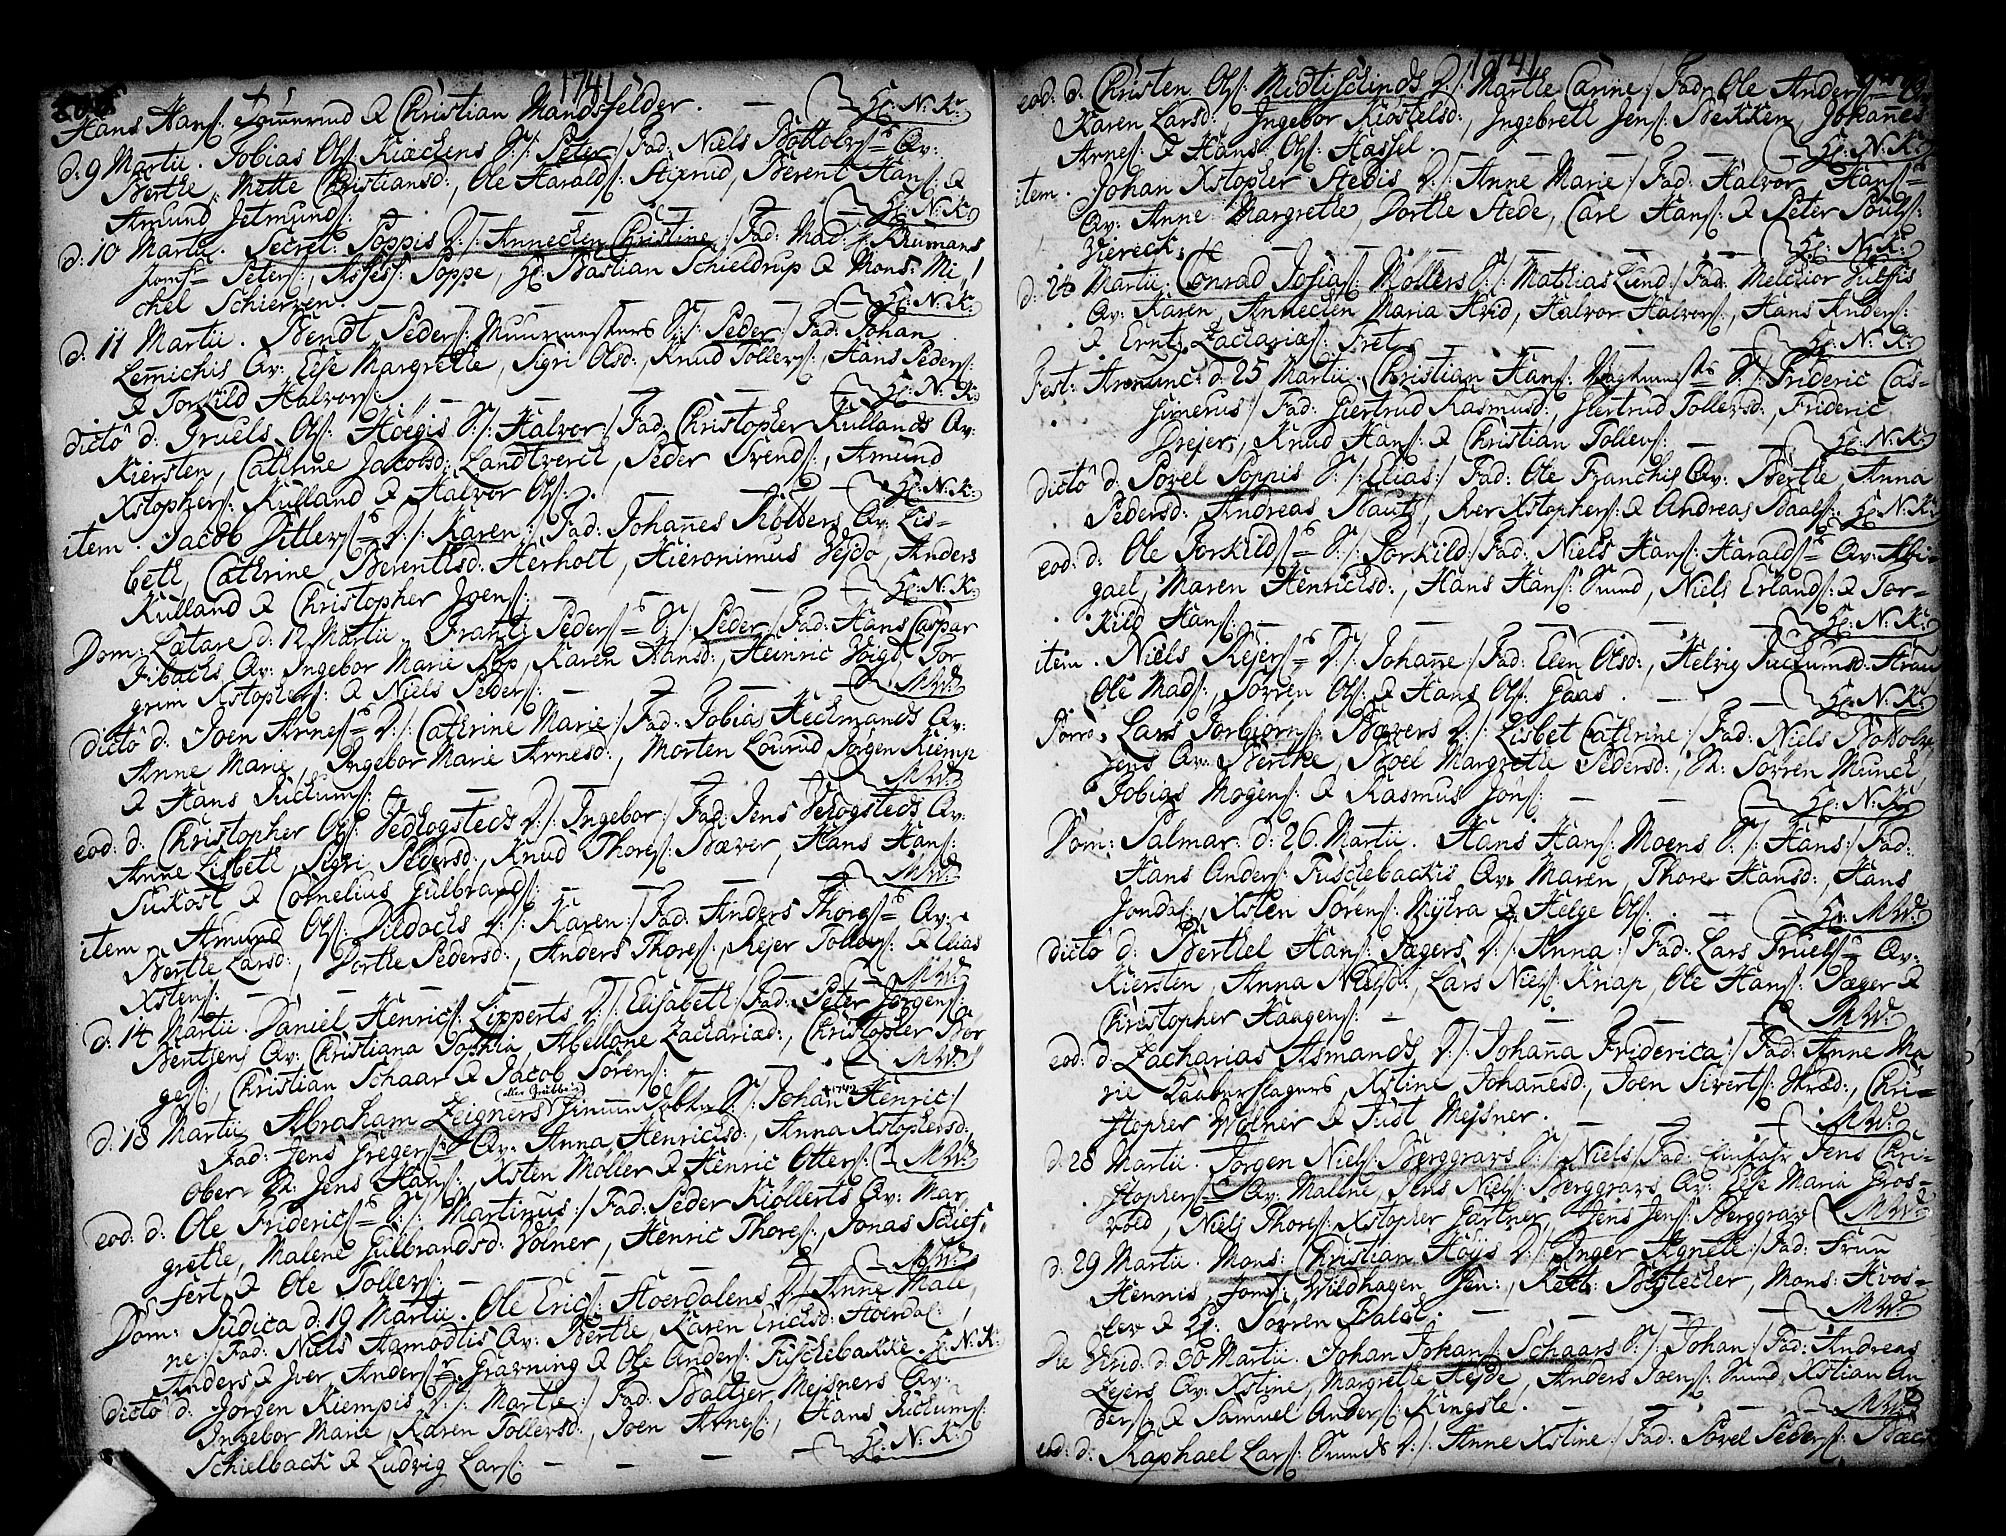 1741
Hans Hanſ: & Christian Mandsfelder. — H: N: K:
d: 9 Martii. Tobias Olſ: Kiækens S:/: Peter:/ Fad: Niels Bottolvſ= Qv:
Berthe, Mette Christiansd:, Ole Haraldſ: Stixrud, Berent Hanſ: &
Amund Jetmundſ: — H: N: K:
d: 10 Martii. Secret: Poppis D:/: Annechen Christine:/ Fad: Mad: Krumans
Jomf= Peterſ:, Asſesſ: Poppe, H: Bastian Schieldrup & Mons: Mi-
chel Schierven. — H: N: K:
d: 11 Martii. Bendt Pederſ: Muurmesters S:/: Peder:/ Fad: Johan
Lemichis Qv: Else Margrethe, Sigri Olsd:, Knud Tollevſ:, Hans Pederſ:
& Torkild Halvorſ: — H: N: K:
dicto d: Truels Olſ: Høegis S:/: Halvor:/ Fad: Christopher Kullands Qv:
Kiersten, Cathrine Jacobsd: Landtvert, Peder Svendſ:, Amund
Xstopherſ: Kulland & Halvor Olſ: — H: N: K:
item. Jacob Ditlevſ= D:/: Karen:/ Fad: Johanes Kolbers Qv: Lis-
beth, Cathrine Berenthsd: Herholt, Hieronimus Vejdo, Anders
Kulland & Christopher Joenſ: — H: N: K:
Dom: Lætare d: 12 Martii. Frantz Pederſ= S:/: Peder:/ Fad: Hans Caspar
Fibachs Qv: Ingebor Marie Kop, Karen Hansd:, Heinric Voigd, Tor
grim Xstopherſ: & Niels Pederſ: — MWd:
dicto d: Joen Arneſ= D:/: Cathrine Marie:/ Fad: Tobias Heckmands Qv:
Anne Marie, Ingebor Marie Arnesd:, Morten Lourud, Jørgen Kiemp
& Hans Juckumſ: — MWd:
eod: d: Christopher Olſ: Vedhogsteds D:/: Ingebor:/ Fad: Jens Vehogsteds Qv:
Anne Lisbeth, Sigri Pedersd:, Knud Thoreſ: Bæver, Hans Hanſ:
Sukost & Cornelius Gulbrandſ: — MWd:
item. Amund Olſ: Dildochs D:/: Karen:/ Fad: Anders Thoreſ= Qv:
Berthe Larsd:, Dorthe Pedersd:, Anders Thoreſ:, Rejer Tollevſ: & Elias
Xstenſ: — MWd:
d: 14 Martii. Daniel Henricſ: Lipperts D:/: Elisabeth:/ Fad: Peter Jørgenſ:
Bentsens Qv: Christiana Sophia, Abellone Zachariæd:, Christopher Bør
gesſ:, Christian Schaar & Jacob Sørenſ: — MWd:
d: 18 Martii. Abraham Zeigners S:/: Johan Henric:/
Fad: Jens Gregerſ= Qv: Anna Henrichsd:, Anna Xstophersd:,
Ober-B: Jens Hanſ:, Xsten Møller & Henric Otterſ: MWd:
eod: d: Ole Fridericſ= S:/: Martinus:/ Fad: Peder Kiøllerts Qv: Mar
grethe, Malene Gulbrandsd: Volner, Henric Thoreſ:, Jonas Schief-
fert & Ole Tollevſ: — MWd:
Dom: Judica d: 19 Martii. Ole Ericſ: Hoerdalens D:/: Anne Male,
ne:/ Fad: Niels Aamodtis Qv: Berthe, Karen Erichsd: Hoerdal:
Anders & Iver Anderſ= Gravning & Ole Anderſ: Fischebakke. H: N: K:
dicto d: Jørgen Kiempis D:/: Marthe:/ Fad: Baltzer Mejsners Qv:
Ingebor Marie, Karen Tollevsd:, Joen Arneſ:, Hans Juckumſ:
Schielback & Ludvig Larſ: — H: N: K:
1741
eod: d: Christen Olſ: Midtischinds D:/: Marthe Carine:/ Fad: Ole Anderſ= Qv:
Karen Larsd:, Ingebor Kiøstelsd:, Ingebreth Jenſ: Bekken, Johanes
Arneſ: & Hans Olſ: Hassel. — H: N: K:
item. Johan Xstopher Stedis D:/: Anne Marie:/ Fad: Halvor Hanſ=
Qv: Anne Margrethe, Dorthe Stede, Carl Hanſ: & Peter Poulſ:
Viereck: — H: N: K:
d: 24 Martii. Conrad Josiaſ: Møllers S:/: Mathias Lund:/ Fad: Melchior Fulssis
Qv: Karen, Annechen Maria Hvid, Halvor Halvorſ:, Hans Anderſ:
& Erntz Zachariæſ: Fret: — H: N: K:
Fest: Annunc: d: 25 Martii. Christian Hanſ: S:/: Frideric Cas-
simerus:/ Fad: Giertrud Rasmusd:, Giertrud Tollevsd:, Frideric
Drejer, Knud Hanſ: & Christian Tollevſ: — H: N: K:
dicto d: Povel Poppis S:/: Elias:/ Fad: Ole Franchis Qv: Berthe, Anna
Pedersd:, Andreas Hautz, Iver Xstopherſ: & Andreas Baalſ: H: N: K:
eod: d: Ole Torkildſ= S:/: Torkild:/ Fad: Niels Hanſ: Haraldſ= Qv: Abi-
gael, Maren Henrichsd:, Hans Hanſ: Smud, Niels Erlandſ: & Tor-
kild Hanſ: — H: N: K:
item. Niels Rejerſ= D:/: Johane:/ Fad: Elen Olsd:, Helvig Juckumsd: Strau
Ole Madſ:, Sørren Olſ: & Hans Olſ: Gaas. — H: N: K:
Porro. Lars Torbiørnſ: Bævers D:/: Lisbet Cathrine:/ Fad: Niels Bottolv
Jens Qv: Berthe, Boel Margrethe Pedersd:, B: Sørren Munch,
Tobias Mogenſ: & Rasmus Jonſ: — H: N: K:
Dom: Palmar: d: 26 Martii. Hans Hanſ: Moens S:/: Hans:/ Fad:
Hans Anderſ: Fischebackis Qv: Maren, Thore Hansd:, Hans
Jondal, Xsten Sørenſ: Myhra & Helge Olſ: — MWd:
dicto d: Berthel Hanſ: Jægers D:/: Anna:/ Fad: Lars Truelſ= Qv:
Kiersten, Anna Nielsd:, Lars Nielſ: Knap, Ole Hanſ: Jæger &
Christopher Haagenſ: — MWd:
eod: d: Zacharias Asmands D:/: Johana Friderica:/ Fad: Anne Ma
rie Kaaberslagers, Xstine Johanesd:, Joen Sivertſ: Skræd:, Chri-
stopher Wølner & Just Mejsner. — MWd:
d: 28 Martii. Jørgen Nielſ: Berggravs S:/: Niels:/ Fad: Jens Chri-
stopherſ= Qv: Malene, Jens Nielſ: Berggravs Qv: Else Maria Gros-
vold, Niels Thoreſ:, Xstopher Gartner, Jens Jenſ: Berggrav MWd:
d: 29 Martii. Mons: Christian Høyjs D:/: Inger Agnete:/ Fad: Frun
Hennis, Jomf: Wildhagen Jun:, Bystecher, Mons: Hvos-
lev & H: Sørren Dahl. — MWd:
Die Virid: d: 30 Martii. Johan Johanſ: Schaars S:/: Johan:/ Fad: Andreas
Zejers Qv: Xstine, Margrethe Heyde, Anders Joenſ: Smud, Xstian An
derſ: & Samuel Anderſ: Kingsle. — MWd:
eod: d: Raphael Larſ: Smuds D:/: Anne Xstine:/ Fad: Povel Pederſ: Bæch